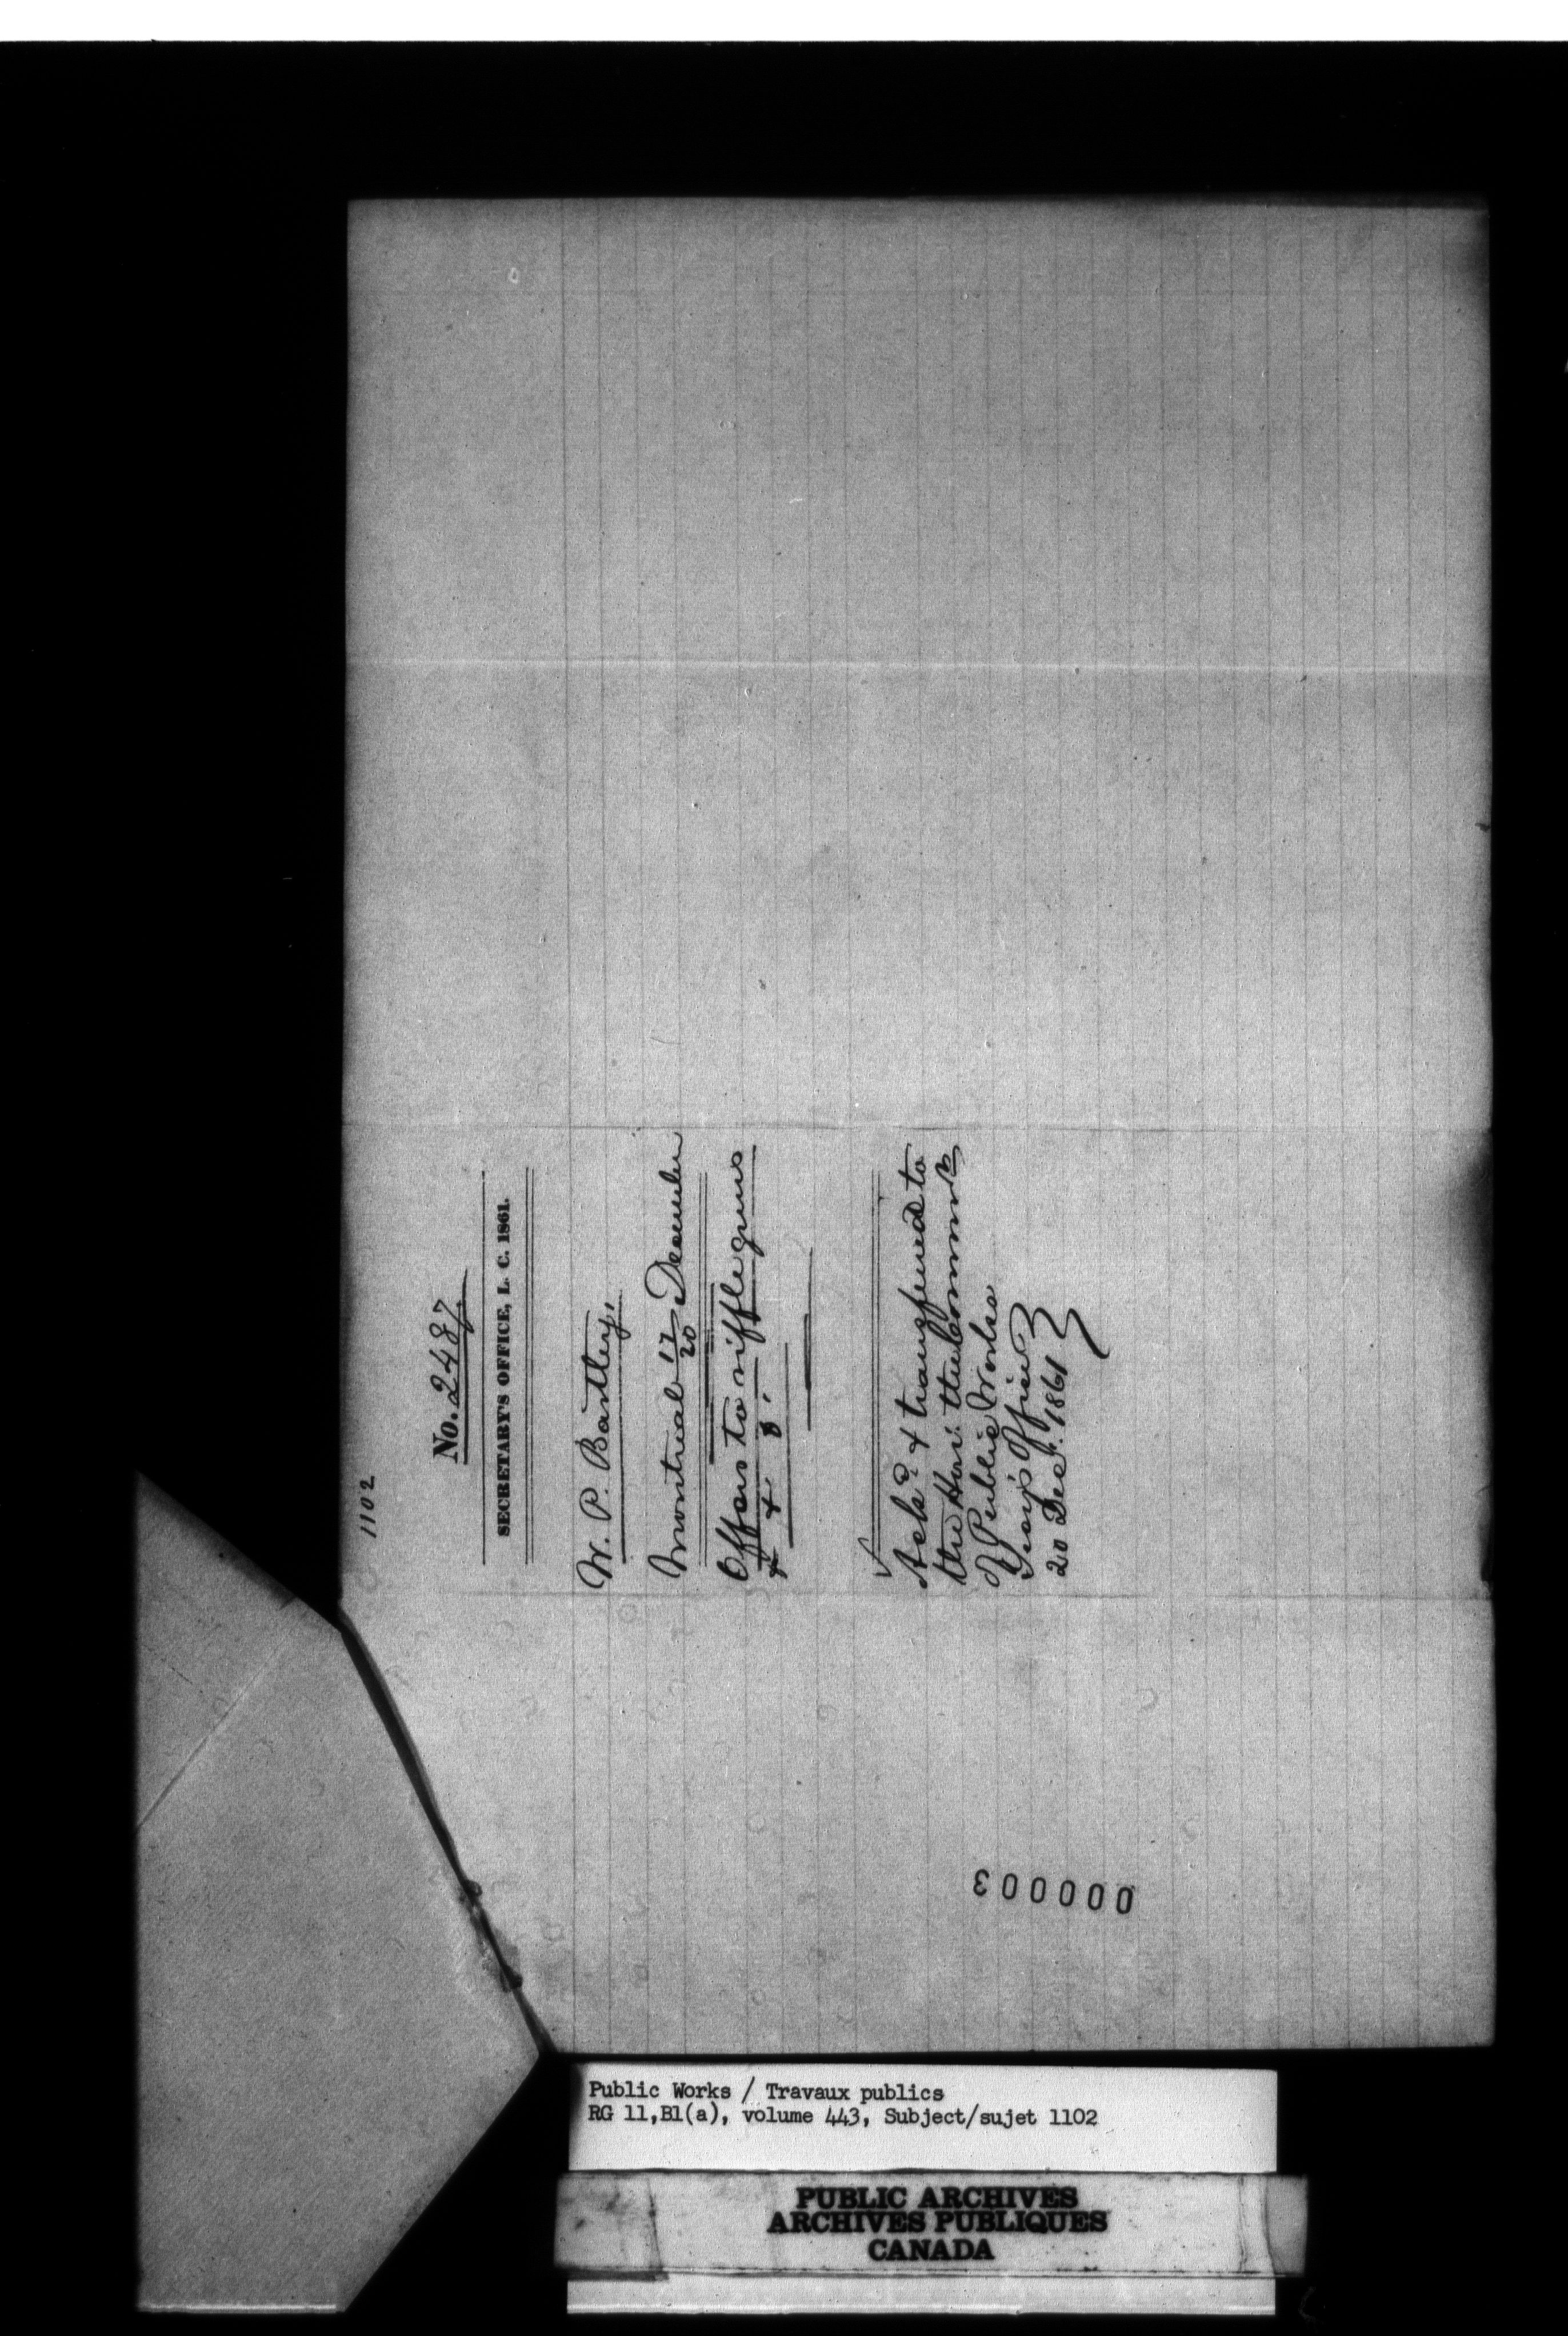 1102
No. 2487.
SECRETARY'S OFFICE, L. C. 1861.
W. P. Bartley,
Montreal 17/20 December
Offers to riffle guns
& &
Ackd. & transferred to
the Hon: the Commr.
of Public Works
Secy's Office
20 Dec. 1861
000003
Public Works / Travaux publics
RG 11,B1(a), volume 443, Subject/sujet 1102
PUBLIC ARCHIVES
ARCHIVES PUBLIQUES
CANADA